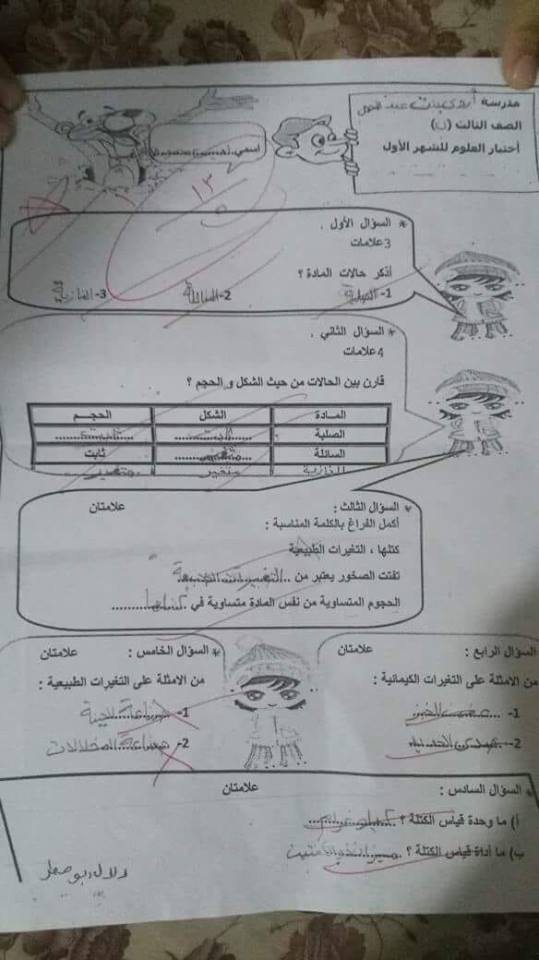 مدرسة أروى بنت عبد
الصف الثالث (ن)
أختبار العلوم للشهر الأول
اسمي
١٣
السؤال الأول .
3علامات
أذكر حالات المادة ؟
1- الصلبة 2- السائلة 3- الغازية
السؤال الثاني .
4علامات
قارن بين الحالات من حيث الشكل و الحجم ؟
المادة الشكل الحجم
الصلبة ثابت ثابت
السائلة متغير ثابت
الغازية متغير متغير
السؤال الثالث : علامتان
أكمل الفراغ بالكلمة المناسبة :
كتلها ، التغيرات الطبيعية
تفتت الصخور يعتبر من ..التغيرات الطبيعية
الحجوم المتساوية من نفس المادة متساوية في كتلها
السؤال الرابع : علامتان
من الامثلة على التغيرات الكيمائية :
1- الخبز
2- صدى الحديد
السؤال الخامس : علامتان
من الامثلة على التغيرات الطبيعية :
1- صناعة الجبنة
2- صناعة المخللات
السؤال السادس : علامتان
أ) ما وحدة قياس الكتلة ؟ كيلو غرام
ب) ما أداة قياس الكتلة ؟ ميزان ذو الكفتين